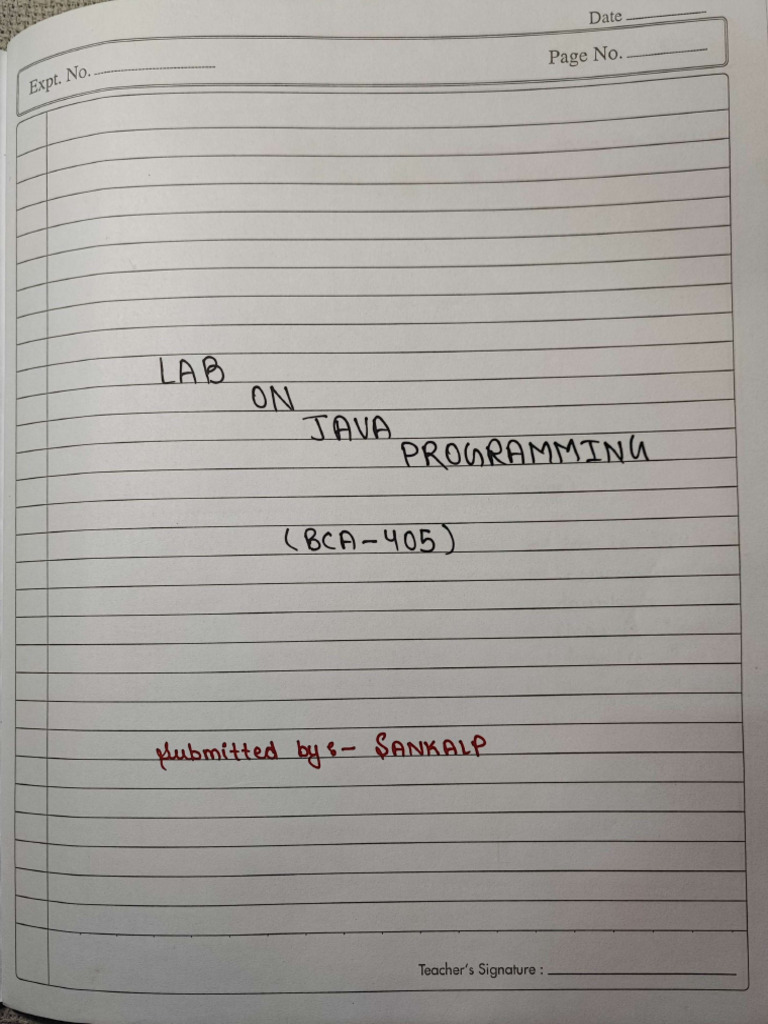 Date
Expt. No.
Page No.
LAB
ON
JAVA
PROGRAMMING
(BCA-405)
Submitted by :- SANKALP
Teacher's Signature :